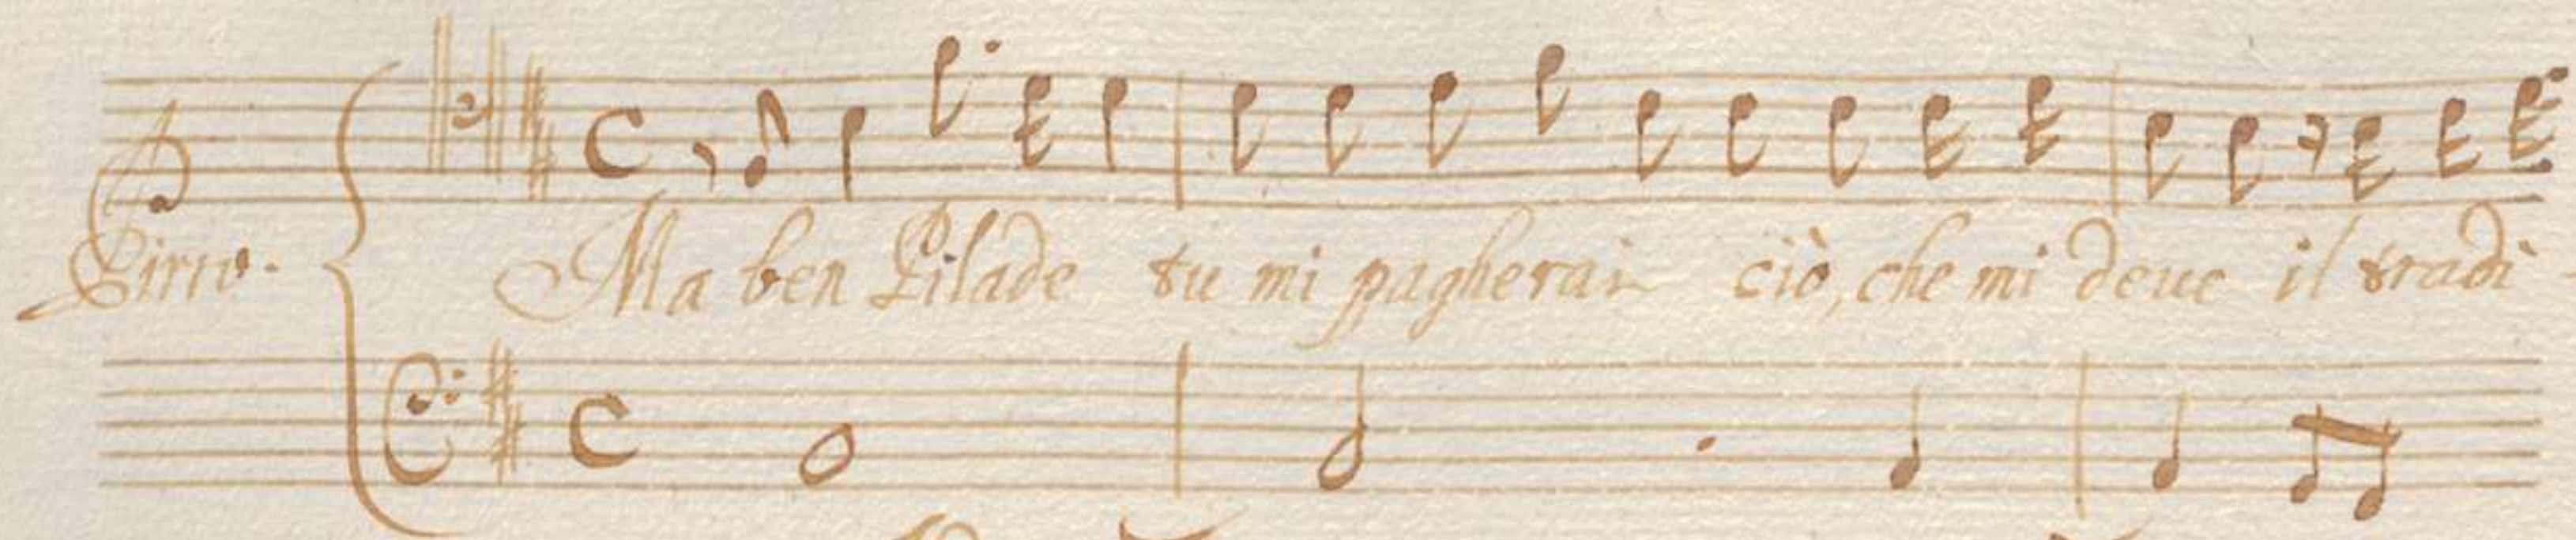 Pirro.
Ma ben Pilade tu mi pagherai ciò, che mi deue il tradi